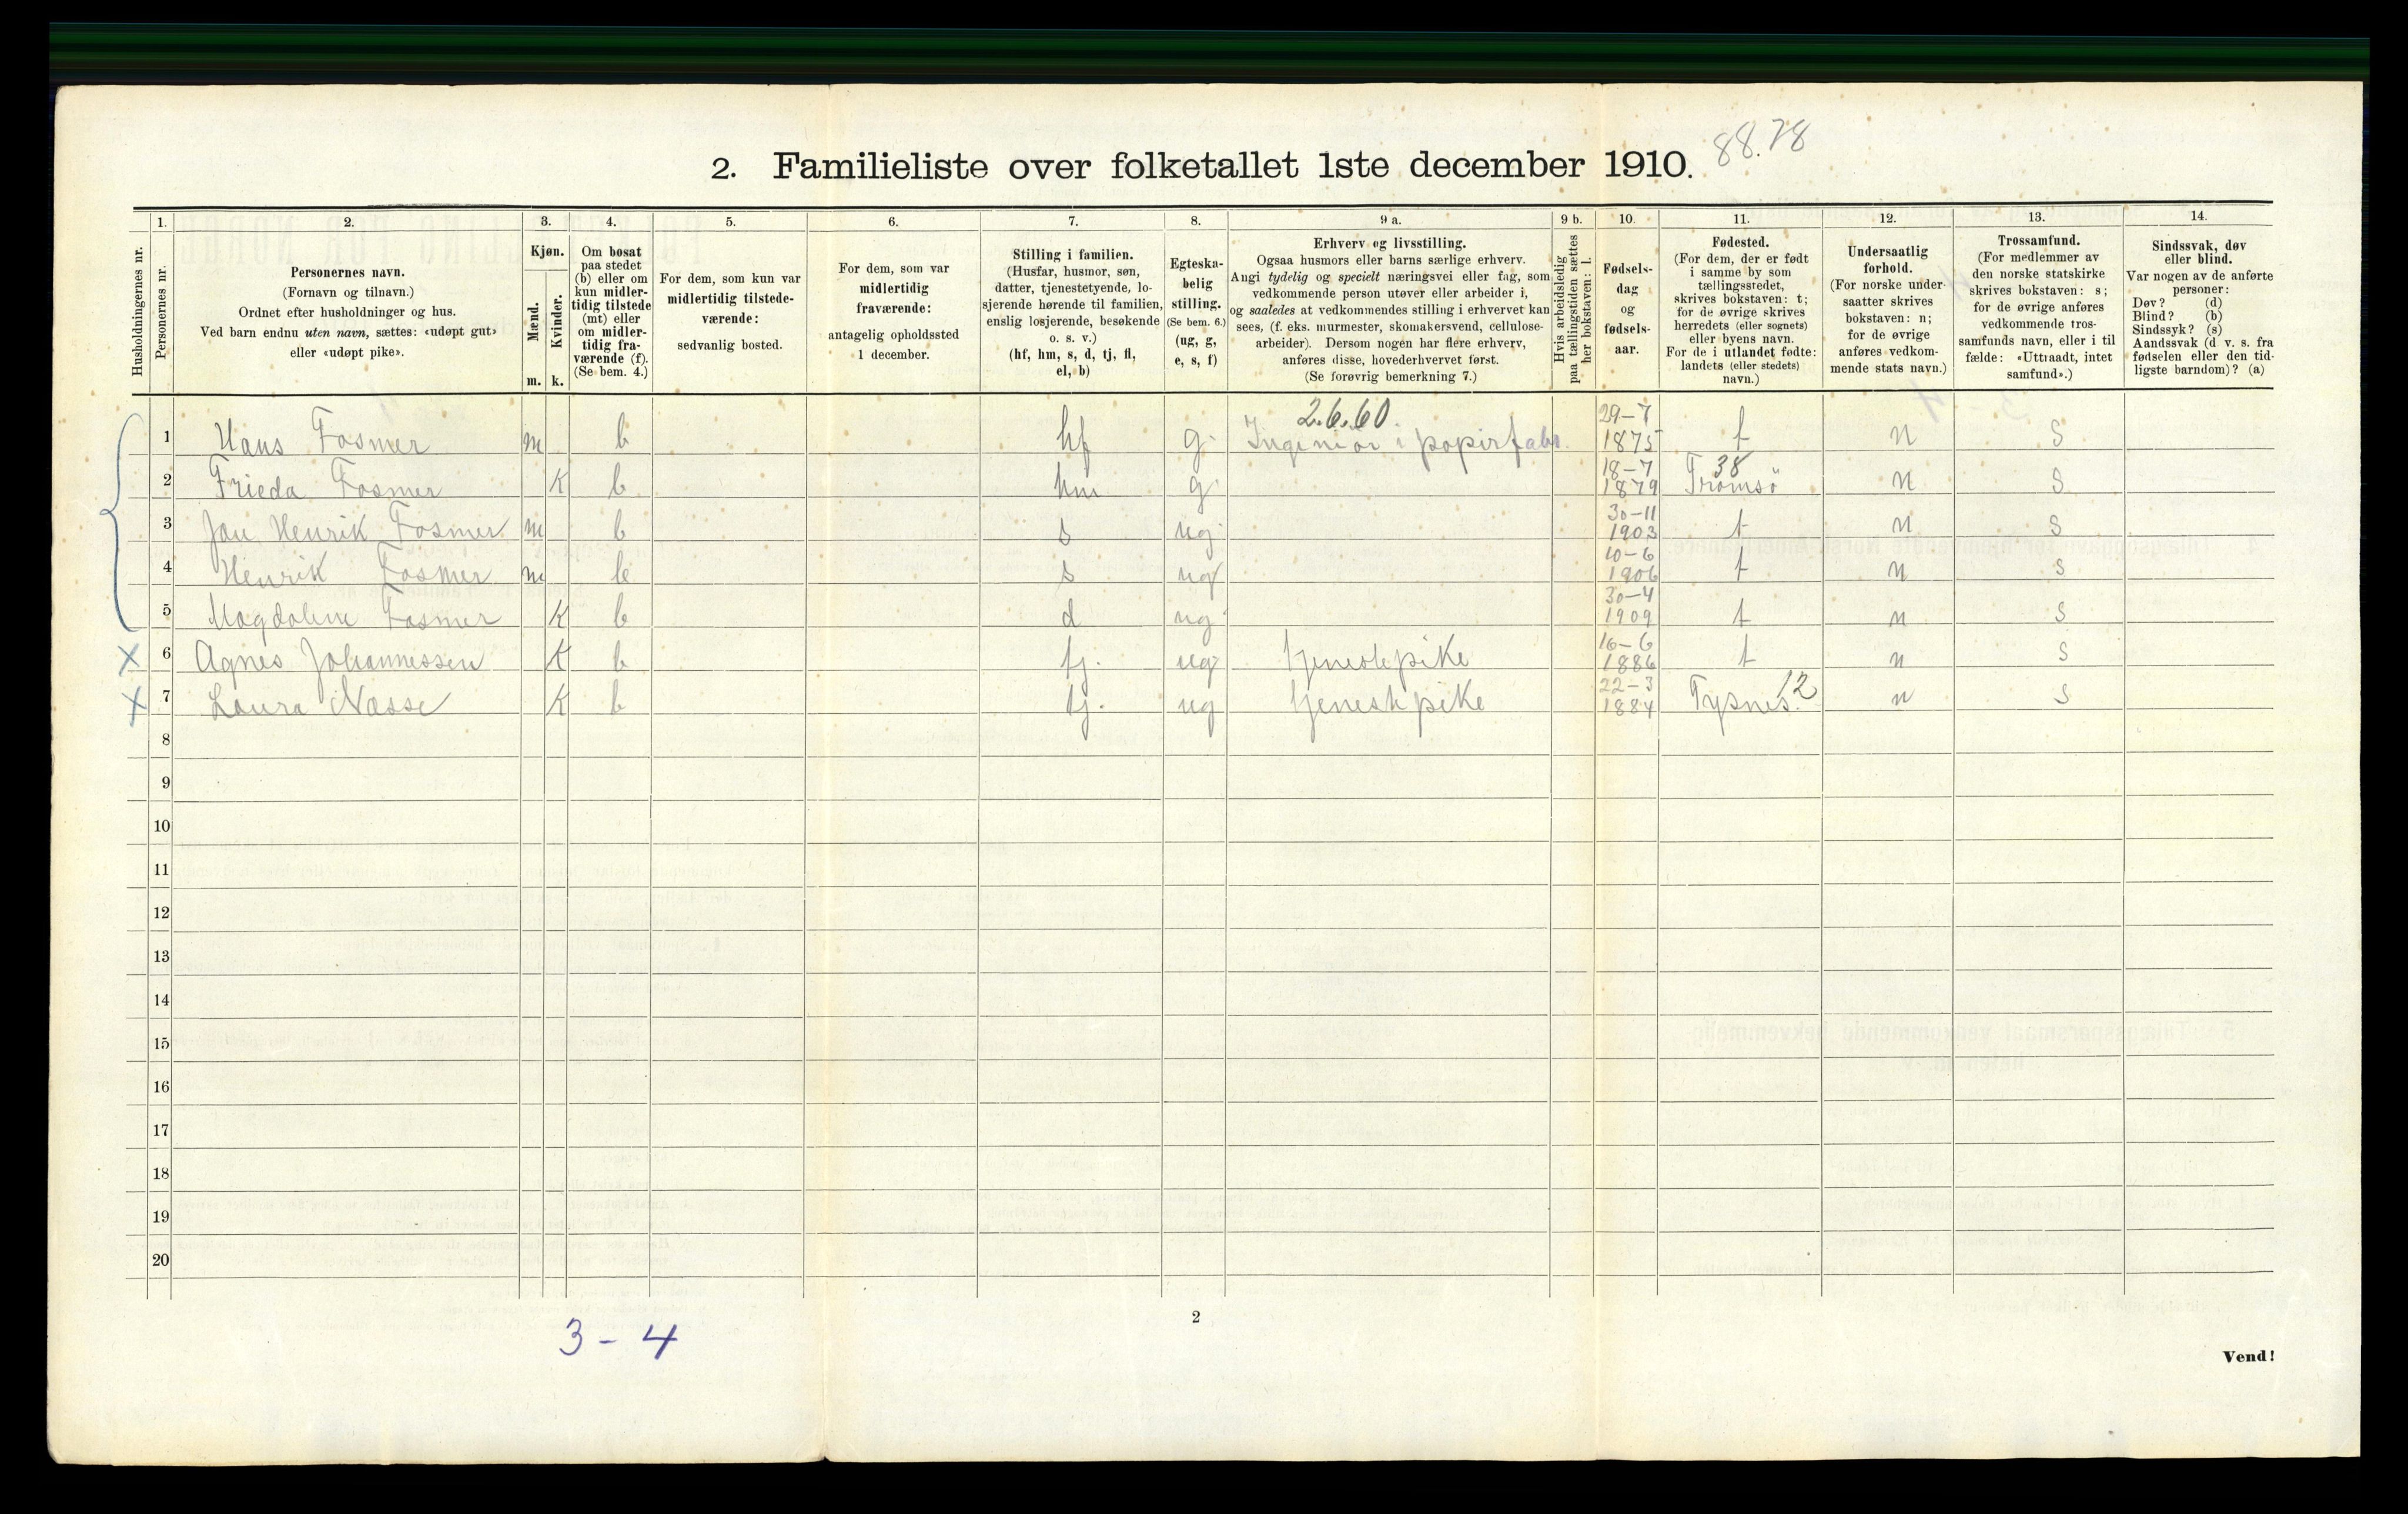 88.78
2. Familieliste over folketallet 1ste december 1910.
1. 2. 3. 4. 5. 6. 7. 8. 9 a. 9 b. 10. 11. 12. 13. 14.
Husholdningernes nr.
Personernes nr.
Personernes navn.
(Fornavn og tilnavn.)
Ordnet efter husholdninger og hus.
Ved barn endnu uten navn, sættes: «udøpt gut»
eller «udøpt pike».
Kjøn.
Mænd.
m.
Kvinder.
k.
Om bosat
paa stedet
(b) eller om
kun midler-
tidig tilstede
(mt) eller
om midler-
tidig fra-
værende (f).
(Se bem. 4.)
For dem, som kun var
midlertidig tilstede-
værende:
sedvanlig bosted.
For dem, som var
midlertidig
fraværende:
antagelig opholdssted
1 december.
Stilling i familien.
(Husfar, husmor, søn,
datter, tjenestetyende, lo-
sjerende hørende til familien,
enslig losjerende, besøkende
o. s. v.)
(hf, hm, s, d, tj, fl,
el, b)
Egteska-
belig
stilling.
(Se bem. 6.)
(ug, g,
e, s, f)
Erhverv og livsstilling.
Ogsaa husmors eller barns særlige erhverv.
Angi tydelig og specielt næringsvei eller fag, som
vedkommende person utøver eller arbeider i,
og saaledes at vedkommendes stilling i erhvervet kan
sees, (f. eks. murmester, skomakersvend, cellulose-
arbeider). Dersom nogen har flere erhverv,
anføres disse, hovederhvervet først.
(Se forøvrig bemerkning 7.)
Hvis arbeidsledig
paa tællingstiden sættes
her bokstaven: l.
Fødsels-
dag
og
fødsels-
aar.
Fødested.
(For dem, der er født
i samme by som
tællingsstedet,
skrives bokstaven: t;
for de øvrige skrives
herredets (eller sognets)
eller byens navn.
For de i utlandet fødte:
landets (eller stedets)
navn.)
Undersaatlig
forhold.
(For norske under-
saatter skrives
bokstaven: n;
for de øvrige
anføres vedkom-
mende stats navn.)
Trossamfund.
(For medlemmer av
den norske statskirke
skrives bokstaven: s;
for de øvrige anføres
vedkommende tros-
samfunds navn, eller i til
fælde: «Uttraadt, intet
samfund».)
Sindssvak, døv
eller blind.
Var nogen av de anførte
personer:
Døv? (d)
Blind? (b)
Sindssyk? (s)
Aandssvak (d v. s. fra
fødselen eller den tid-
ligste barndom)? (a)
2.6.60 29-7
1 Hans Fosmer m b hf g. Ingeniør i papirfabr. 1875 t n s
18-7 38
2 Frieda Fosmer K b hm g. 1879 Tromsö n s
30-11
3 Jan Henrik Fosmer m b s ug. 1903 t n s
10-6
4 Henrik Fosmer m b s ug 1906 t n s
30-4
5 Magdalene Fosmer K b d ug. 1909 t n s
16-6
X 6 Agnes Johannessen K b tj. ug tjenestepike 1886 t n s
22-3 12
X 7 Laura Næsse K b tj. ug tjenestepike 1884 Tysnes. n s
8
9
10
11
12
13
14
15
16
17
18
19
20
2
3-4
Vend!